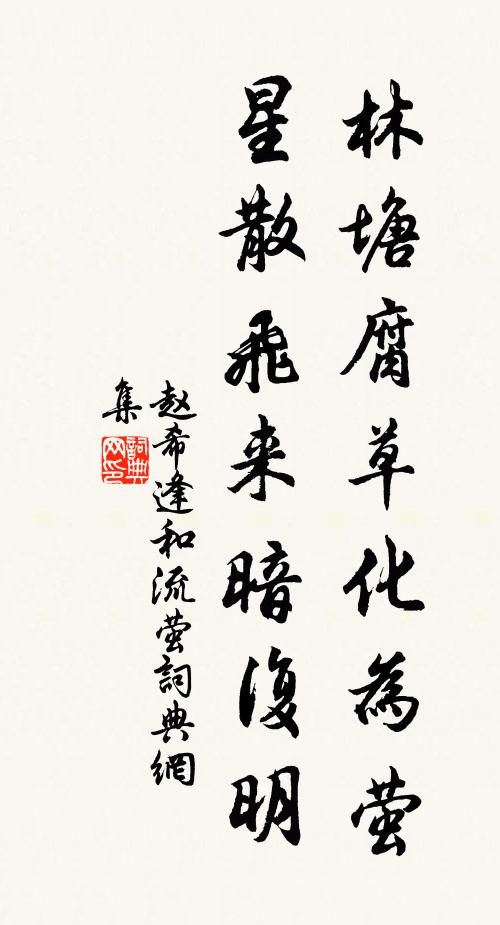 林塘腐草化為萤
星散飛来暗復明
赵希逢和流萤詞典網
集
詞典
网印